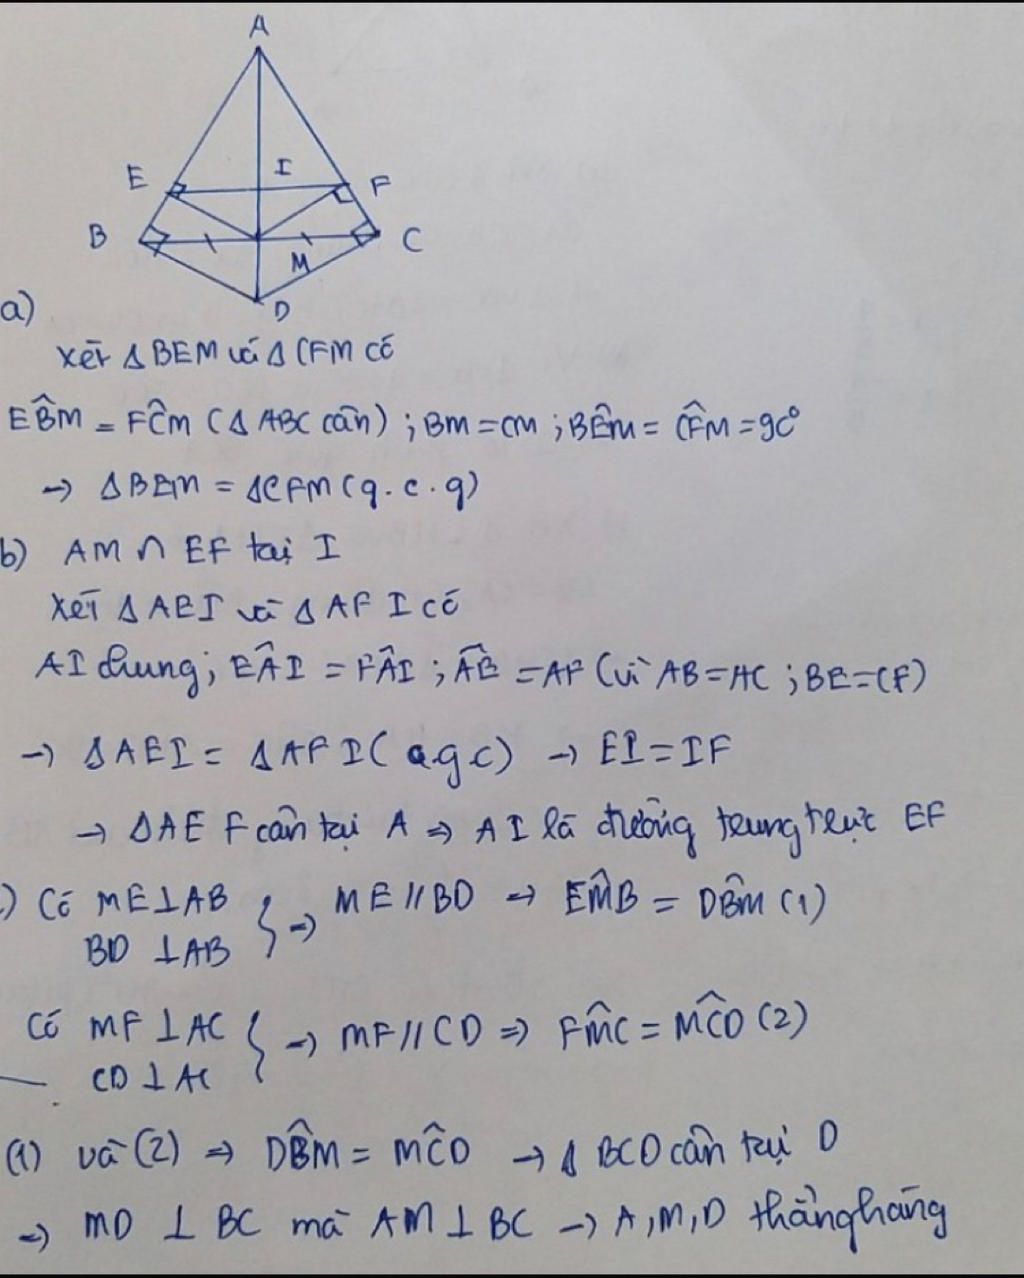 A
E
I
F
B
C
M
D
a)
Xét Δ BEM và Δ CFM có
EB̂M = FĈM (Δ ABC cân) ; BM = CM ; BÊM = CF̂M = 90°
→ ΔBEM = ΔCFM (g.c.g)
b) AM ∩ EF tại I
Xét Δ AEI và Δ AFI có
AI chung ; EÂI = FÂI ; AE = AF (vì AB = AC ; BE = CF)
→ ΔAEI = ΔAFI (c.g.c) → EI = IF
→ ΔAEF cân tại A ⇒ AI là đường trung trực EF
) Có ME ⊥ AB
BD ⊥ AB } ⇒ ME // BD → EM̂B = DB̂M (1)
Có MF ⊥ AC
CD ⊥ AC } → MF // CD ⇒ FM̂C = MĈD (2)
(1) và (2) ⇒ DB̂M = MĈD → Δ BCD cân tại D
⇒ MD ⊥ BC mà AM ⊥ BC → A, M, D thẳng hàng